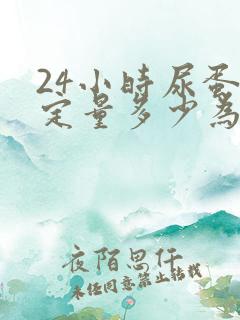 24小时尿蛋
定量多少为
夜陌思仟
未经同意禁止转载